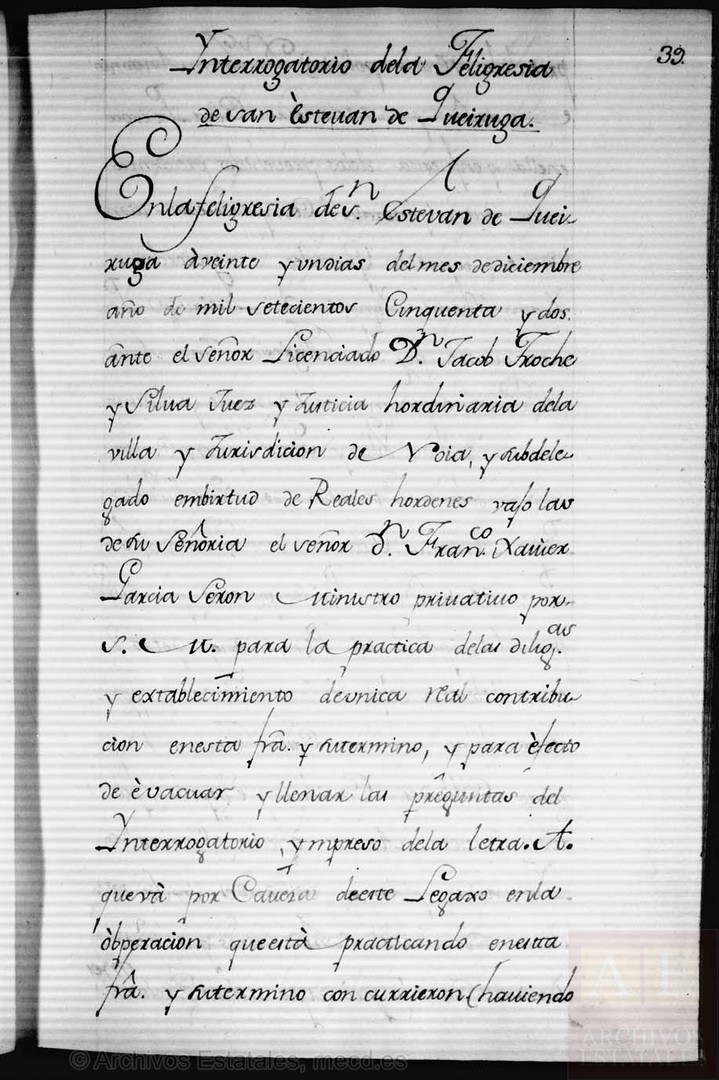 39.
Ynterrogatorio dela Feligresia
de san Èstevan de Queiruga.
Enla feligresia de S.n Estevan de Quei-
ruga à veinte y un dias del mes de diciembre
año de mil setecientos Cinquenta y dos.
ante el señor Licenciado D.n Jacob Troche
y Silva Juez y Justicia hordinaria dela
villa y Jurisdicion de Noia, y subdele-
gado en birtud de Reales hordenes vajo las
de su Señoria el señor d.n Fran.co Xavier
Garcia Seron Ministro privativo por
S. M. para la practica delas dilig.as
y extablecimiento de unica real contribu-
cion en esta frâ. y su termino, y para èfecto
de èvacuar y llenar las preguntas del
Ynterrogatorio ympreso dela letra. A.
que và por Caveza de este Legaxo en la
òbperaciôn que està practicando en esta
frâ. y su termino con currieron (haviendo
© Archivos Estatales, mecd.es
AE
ARCHIVOS
ESTATALES